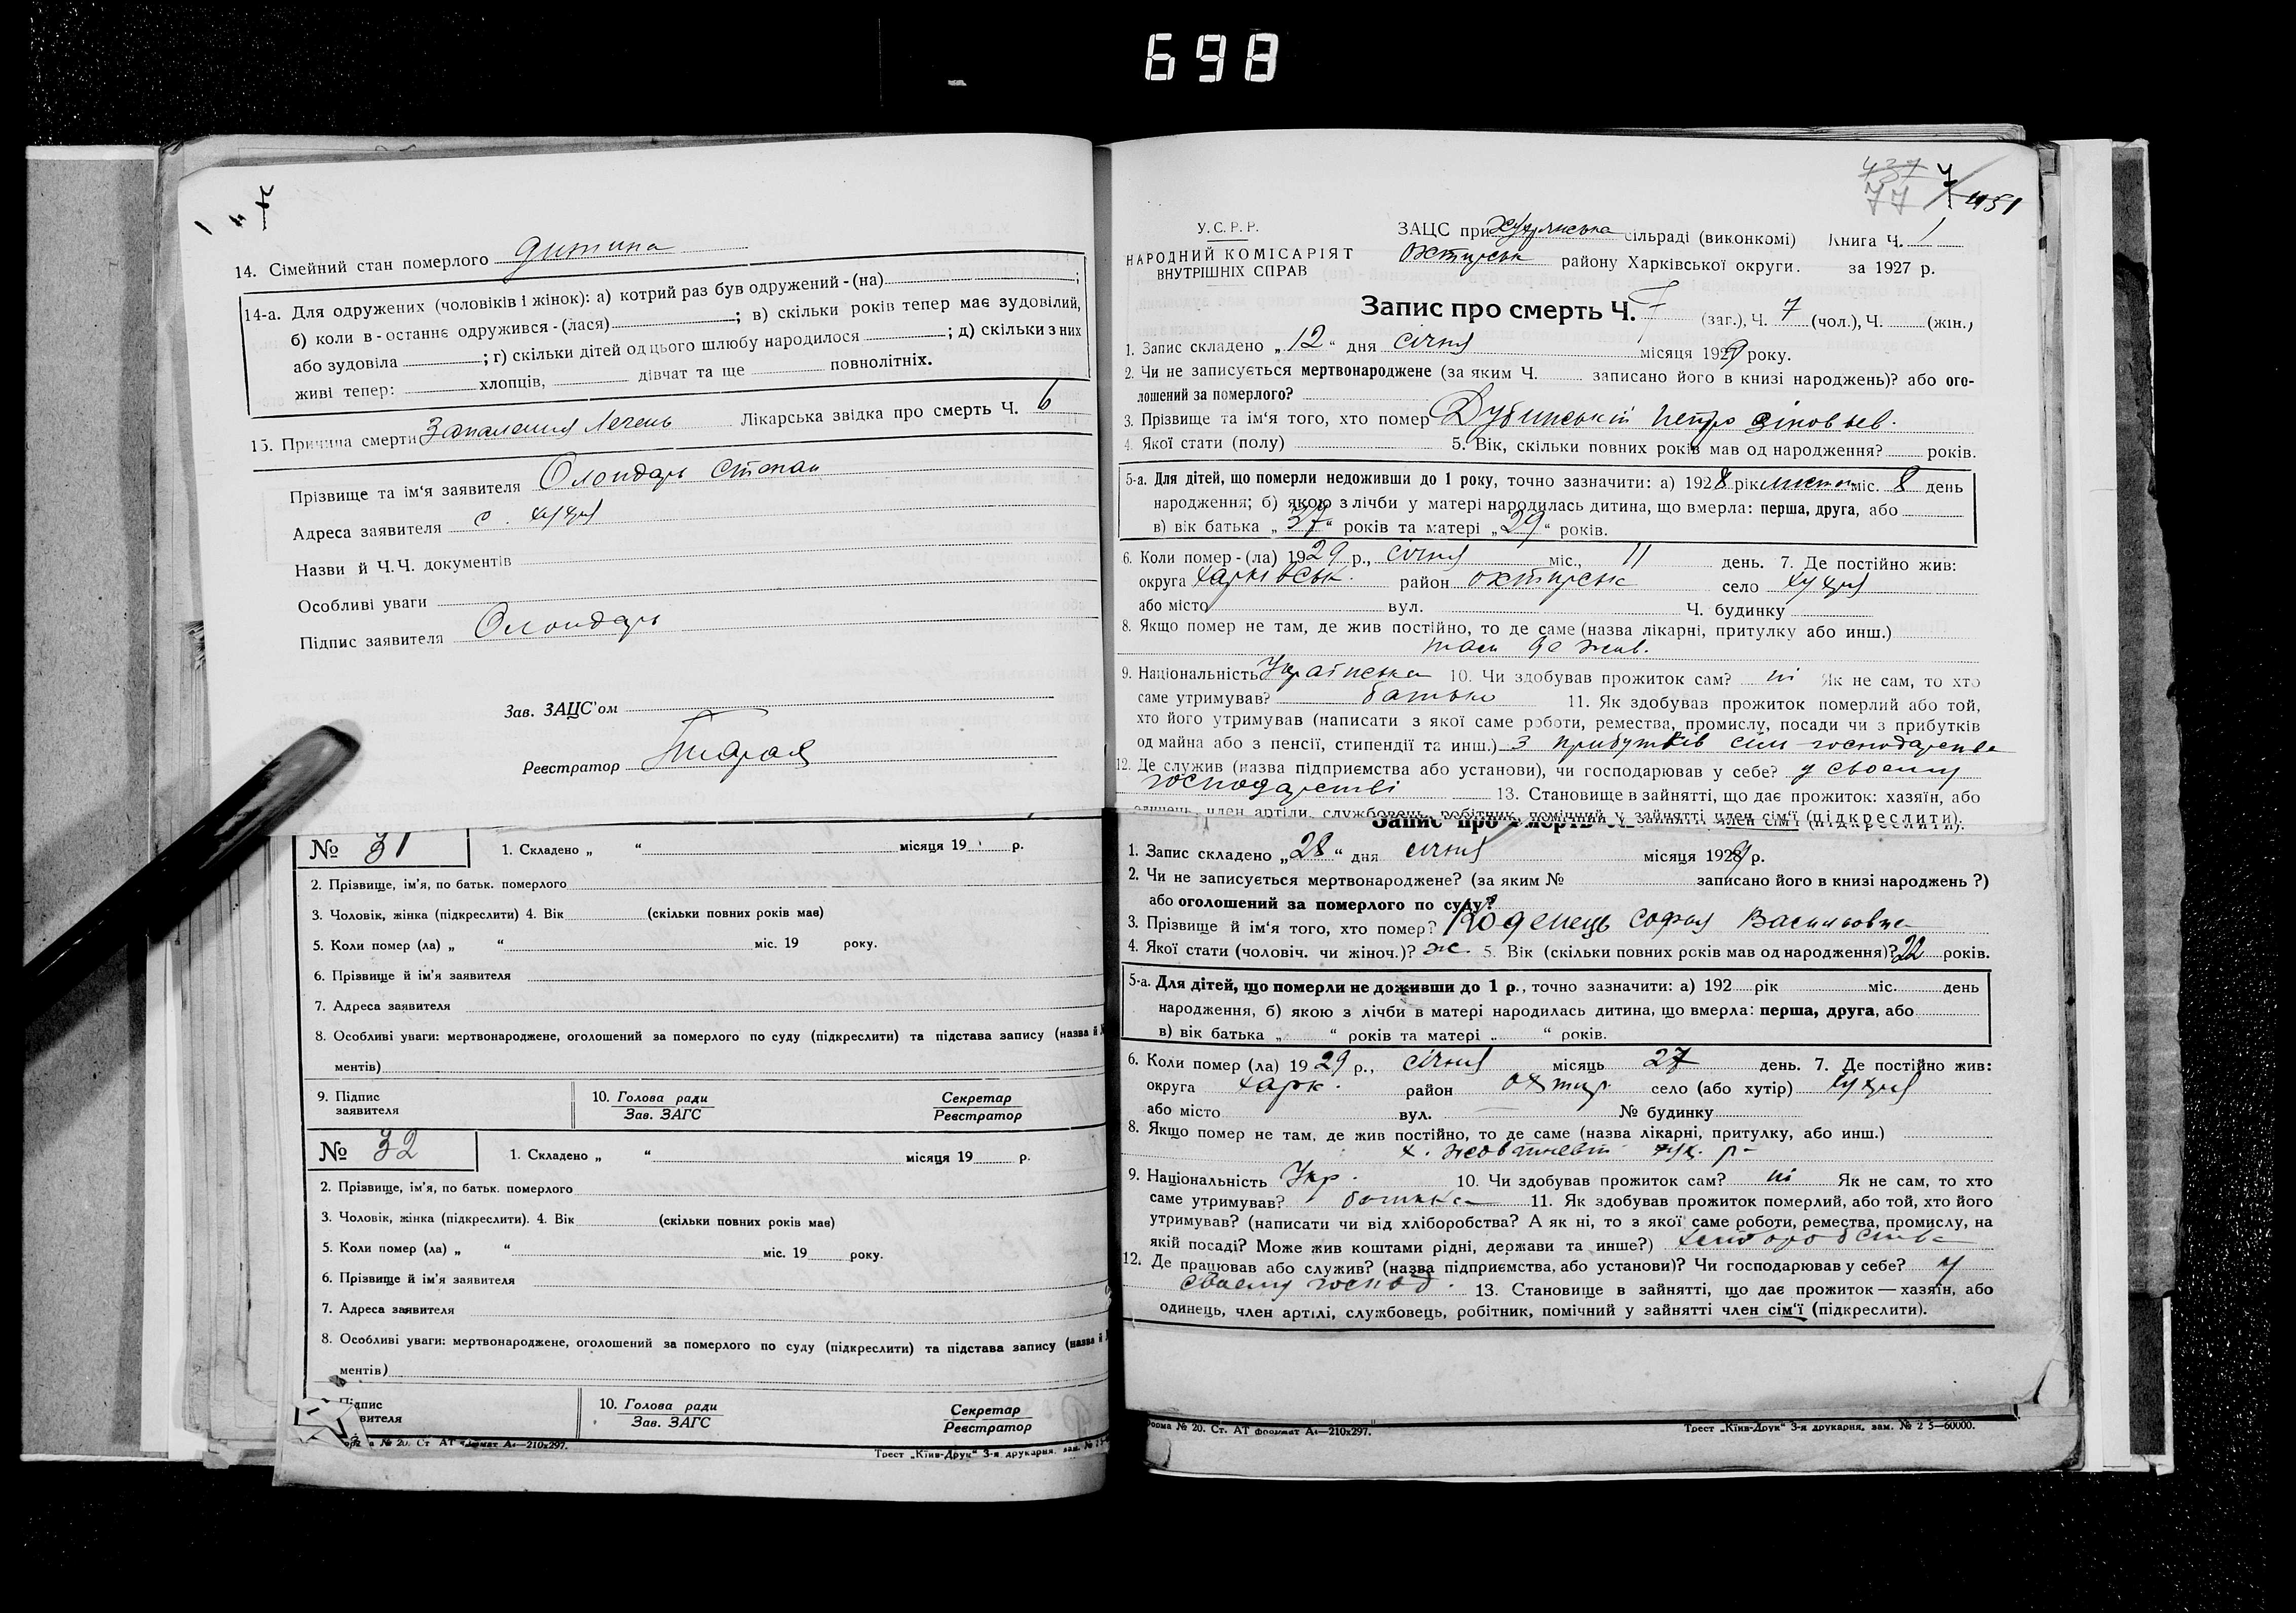 698
7
14. Сімейний стан померлого дитина
14-а. Для одружених (чоловіків і жінок): а) котрий раз був одружений - (на) ;
б) коли в - останнє одружився - (лася) ; в) скільки років тепер має зудовілий,
або зудовіла ; г) скільки дітей од цього шлюбу народилося ; д) скільки з них
живі тепер: хлопців, дівчат та ще повнолітніх.
15. Причина смерти Запалення Легень Лікарська звідка про смерть Ч. 6
Прізвище та ім'я заявителя Степан
Адреса заявителя с. Хухря
Назви й Ч.Ч. документів
Особливі уваги
Підпис заявителя
Зав. ЗАЦС'ом
Реєстратор
№ 31 1. Складено „ “ місяця 19 р.
2. Прізвище, ім'я, по батьк. померлого
3. Чоловік, жінка (підкреслити) 4. Вік (скільки повних років має)
5. Коли помер (ла) „ “ міс. 19 року.
6. Прізвище й ім'я заявителя
7. Адреса заявителя
8. Особливі уваги: мертвонароджене, оголошений за померлого по суду (підкреслити) та підстава запису (назва й
ментів)
9. Підпис заявителя 10. Голова ради Зав. ЗАГС Секретар Реєстратор
№ 32 1. Складено „ “ місяця 19 р.
2. Прізвище, ім'я, по батьк. померлого
3. Чоловік, жінка (підкреслити). 4. Вік (скільки повних років має)
5. Коли помер (ла) „ “ міс. 19 року.
6. Прізвище й ім'я заявителя
7. Адреса заявителя
8. Особливі уваги: мертвонароджене, оголошений за померлого по суду (підкреслити) та підстава запису (назва й
ментів)
Підпис 10. Голова ради Зав. ЗАГС Секретар Реєстратор
№ 20. Ст. АТ формат А4—210х297. Трест „Київ-Друк“ 3-я друкарня, зам. №
437
77 451
У.С.Р.Р.
НАРОДНИЙ КОМІСАРІЯТ
ВНУТРІШНІХ СПРАВ
ЗАЦС при Хухрянська сільраді (виконкомі) Книга Ч. 1
Охтирськ району Харківської округи. за 1927 р.
Запис про смерть Ч. 7 (заг.), Ч. 7 (чол.), Ч. (жін.)
1. Запис складено „12“ дня січня місяця 1929 року.
2. Чи не записується мертвонароджене (за яким Ч. записано його в книзі народжень)? або ого-
лошений за померлого?
3. Прізвище та ім'я того, хто помер Дубинський Петро Зіновьев.
4. Якої стати (полу) 5. Вік, скільки повних років мав од народження? років.
5-а. Для дітей, що померли недоживши до 1 року, точно зазначити: а) 1928 рік листоп міс. 8 день
народження; б) якою з лічби у матері народилась дитина, що вмерла: перша, друга, або
в) вік батька „37“ років та матері „29“ років.
6. Коли помер - (ла) 1929 р., січня міс., 11 день. 7. Де постійно жив:
округа Харківськ. район Охтирськ село Хухря
або місто вул. Ч. будинку
8. Якщо помер не там, де жив постійно, то де саме (назва лікарні, притулку або инш.)
там де жив.
9. Національність Українська 10. Чи здобував прожиток сам? ні Як не сам, то хто
саме утримував? батько 11. Як здобував прожиток померлий або той,
хто його утримував (написати з якої саме роботи, ремества, промислу, посади чи з прибутків
од майна або з пенсії, стипендії та инш.) З прибутків сіль господарства
12. Де служив (назва підприємства або установи), чи господарював у себе? у своєму
господарстві 13. Становище в зайнятті, що дає прожиток: хазяїн, або
одинець, член артіли, службовець, робітник, помічний у зайнятті член сім'ї (підкреслити).
Запис про смерть
1. Запис складено „28“ дня січня місяця 1929 р.
2. Чи не записується мертвонароджене? (за яким № записано його в книзі народжень ?)
або оголошений за померлого по суду?
3. Прізвище й ім'я того, хто помер? Коденець Софья Васильовна
4. Якої стати (чоловіч. чи жіноч.)? ж. 5. Вік (скільки повних років мав од народження)? 22 років.
5-а. Для дітей, що померли не доживши до 1 р., точно зазначити: а) 192 рік міс. день
народження, б) якою з лічби в матері народилась дитина, що вмерла: перша, друга, або
в) вік батька „ “ років та матері „ “ років.
6. Коли помер (ла) 1929 р., січня місяць 27 день. 7. Де постійно жив:
округа Харк. район Охтир. село (або хутір) Хухря
або місто вул. № будинку
8. Якщо помер не там, де жив постійно, то де саме (назва лікарні, притулку, або инш.)
9. Національність Укр. 10. Чи здобував прожиток сам? ні Як не сам, то хто
саме утримував? батька 11. Як здобував прожиток померлий, або той, хто його
утримував? (написати чи від хліборобства? А як ні, то з якої саме роботи, ремества, промислу, на
якій посаді? Може жив коштами рідні, держави та инше?) хліборобства
12. Де працював або служив? (назва підприємства, або установи)? Чи господарював у себе? у
своєму господ. 13. Становище в зайнятті, що дає прожиток — хазяїн, або
одинець, член артілі, службовець, робітник, помічний у зайнятті член сім'ї (підкреслити).
Форма № 20. Ст. АТ формат А4—210х297. Трест „Київ-Друк“ 3-я друкарня, зам. № 2 5—60000.